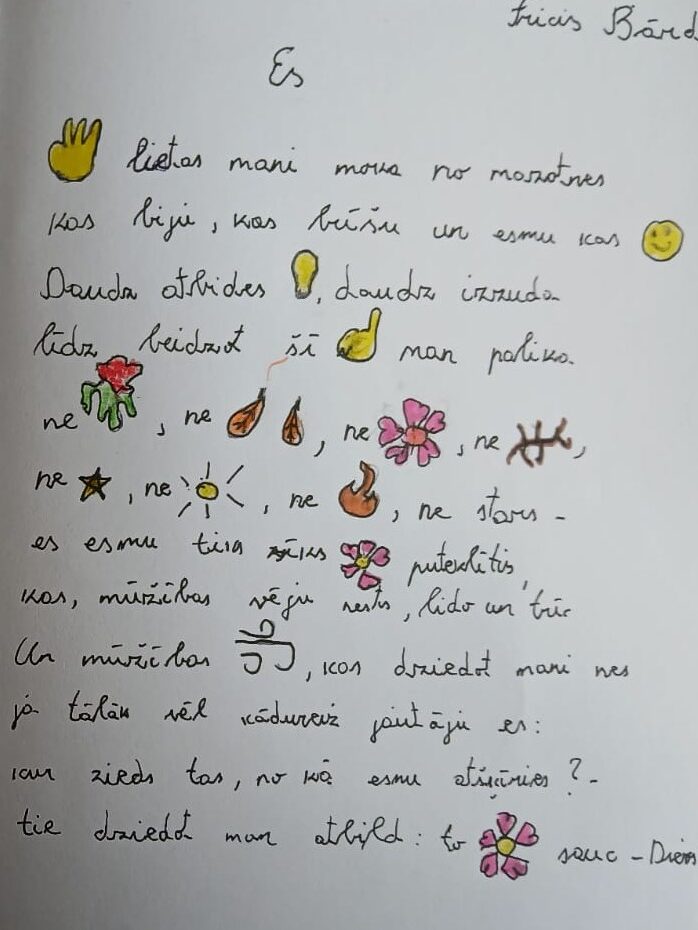 Fricis Bārd
Es
lietas mani moka no mazotnes
kas biju, kas būšu un esmu kas
Daudz atbildes, daudz izzuda
līdz beidzot šī man palika.
ne, ne, ne, ne,
ne, ne, ne, ne stars -
es esmu tik puteklītis,
kas, mūžības vēju nests, lido un trīc
Un mūžības, kas dziedot mani nes
ja tālāk vēl kādureiz jautāju es:
kau zieds tas, no kā esmu atšķīries? -
tie dziedot man atbild: to sauc - Dievs